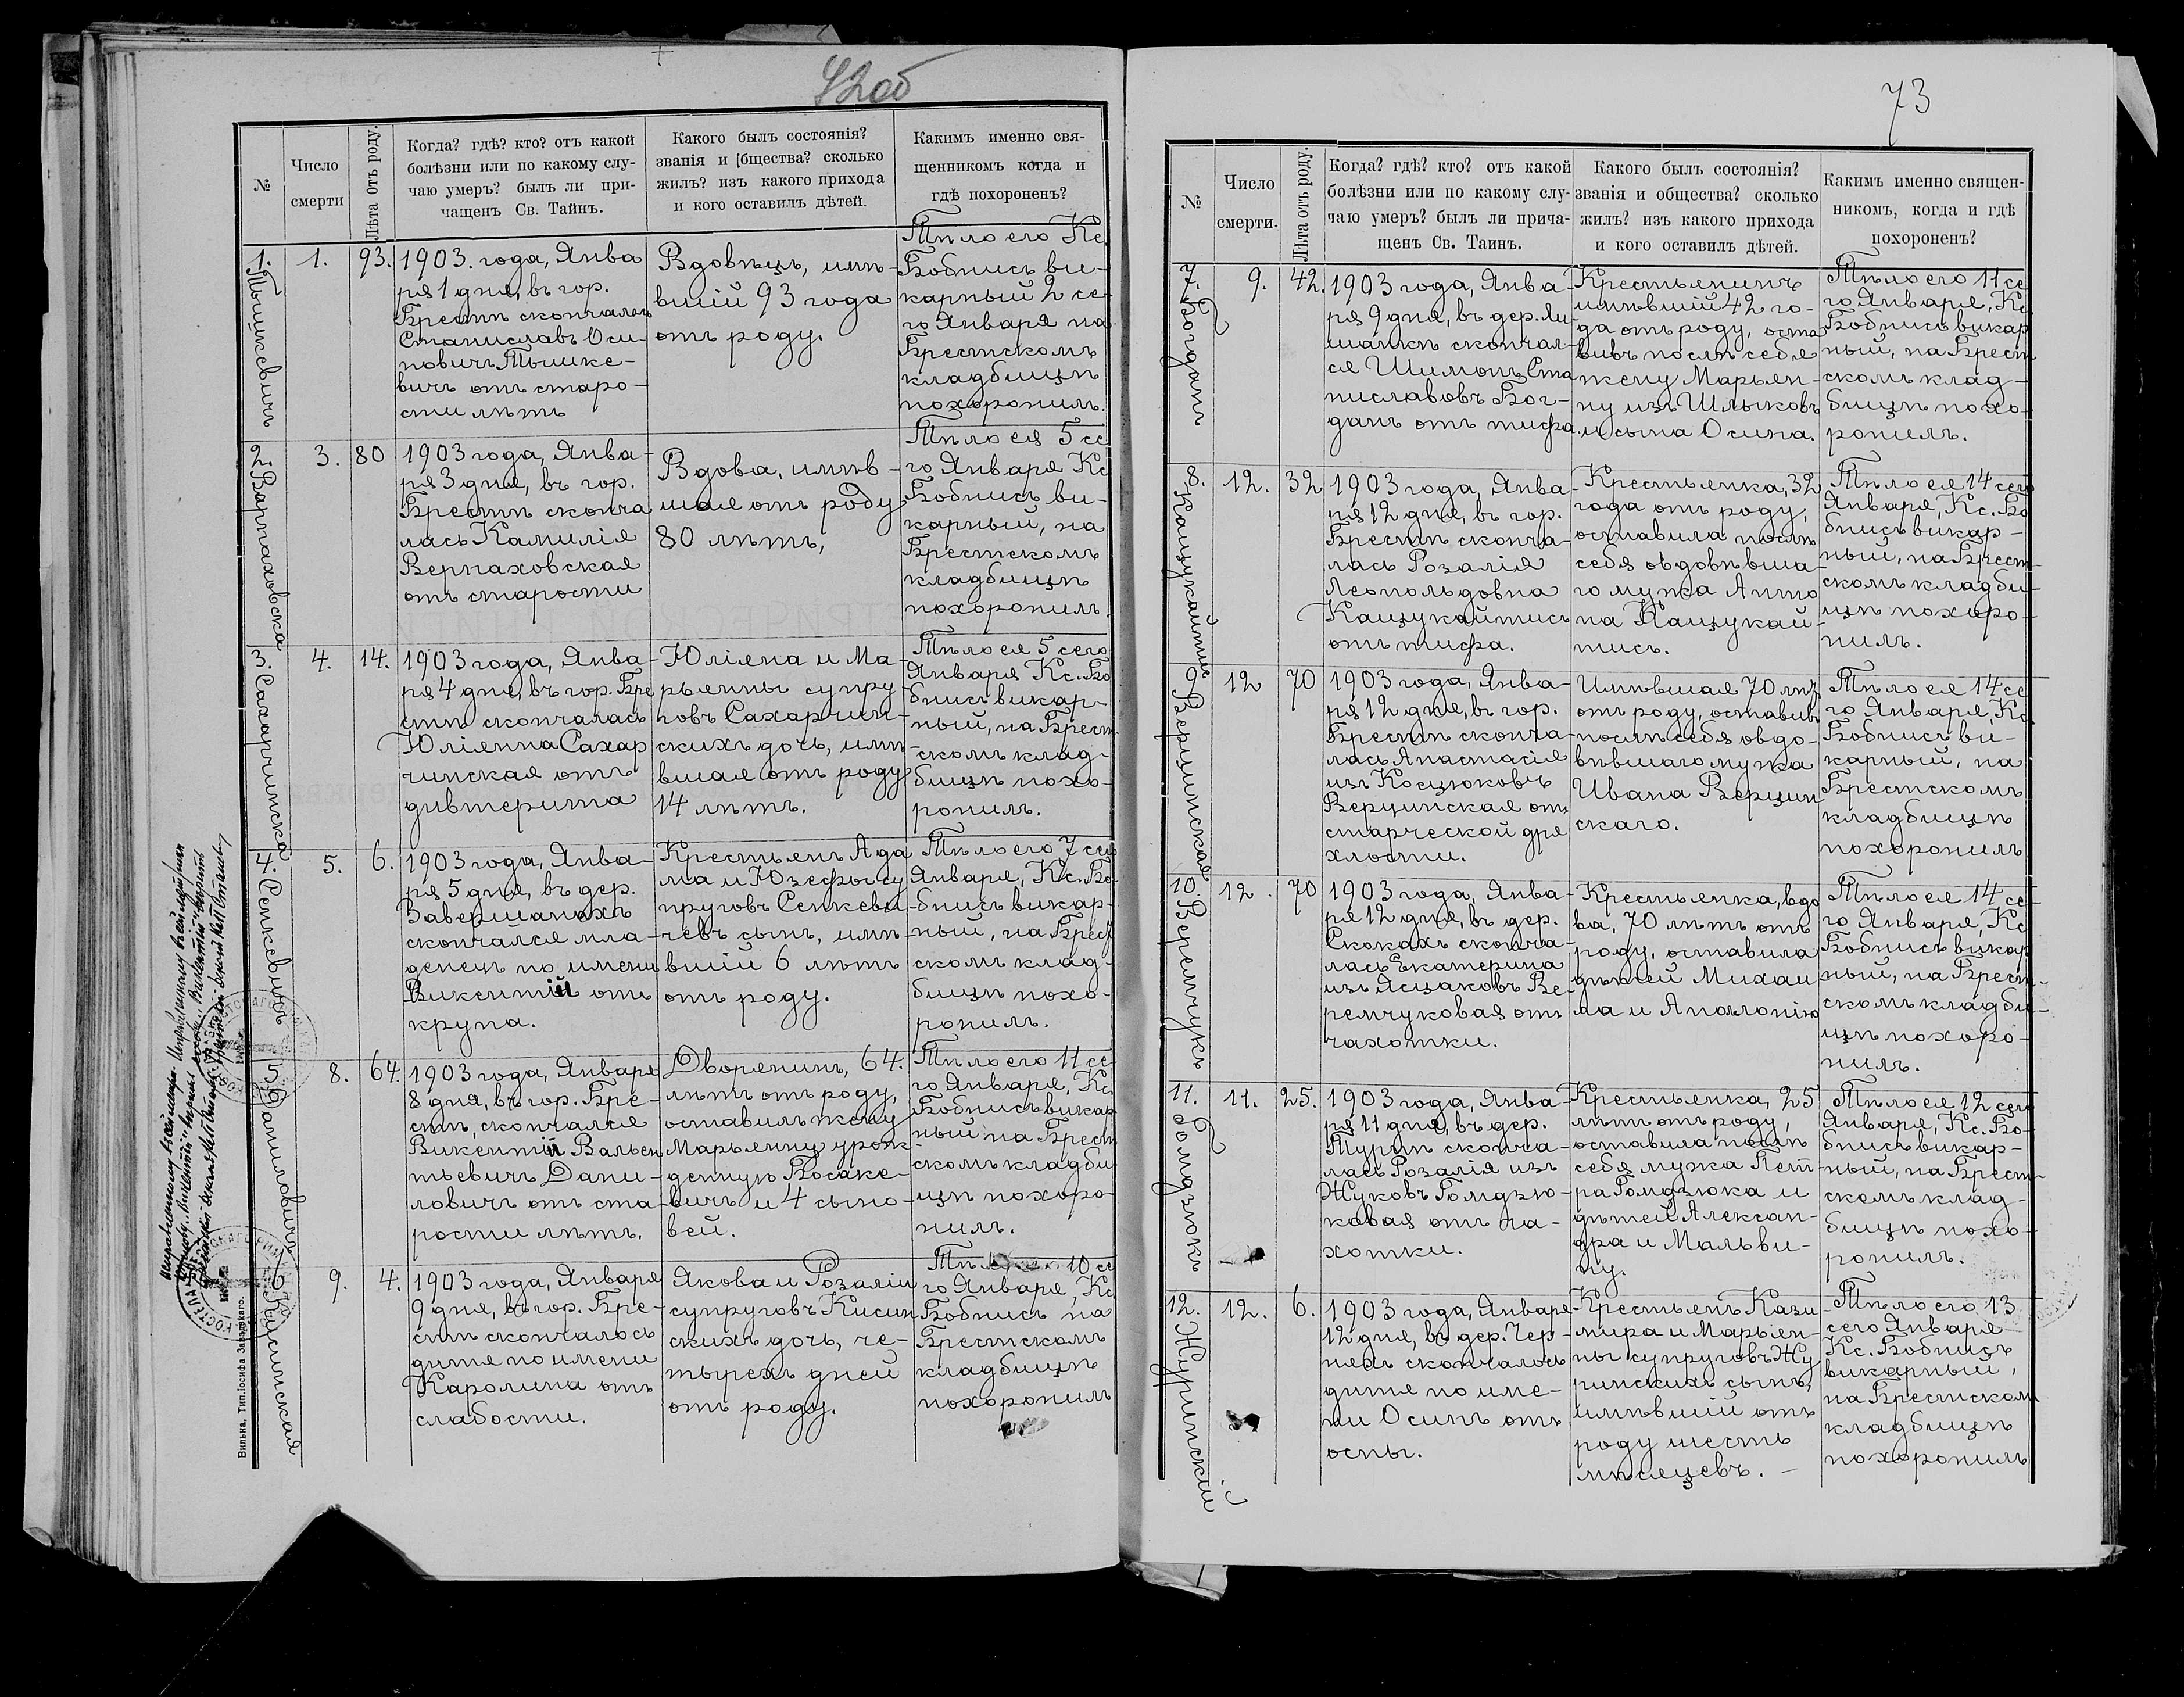 72об
№
Число
смерти
Лѣта отъ роду.
Когда? гдѣ? кто? отъ какой
болѣзни или по какому слу-
чаю умеръ? былъ ли при-
чащенъ Св. Тайнъ.
Какого былъ состоянія?
званія и общества? сколько
жилъ? изъ какого прихода
и кого оставилъ дѣтей.
Какимъ именно свя-
щенникомъ когда и
гдѣ похороненъ?
1.
Тышкевичъ
1.
93.
1903. года, Янва
ря 1 дня, въ гор.
Брестѣ скончался
Станиславъ Оси-
повичъ Тышке-
вичъ отъ старо-
сти лѣтъ
Вдовецъ, имѣ-
вшій 93 года
отъ роду.
Тѣло его Кс.
Бобнисъ ви-
карный 2 се-
го Января на
Брестскомъ
кладбищѣ
похоронилъ.
2.
Варпаховска
3.
80
1903 года, Янва-
ря 3 дня, въ гор.
Брестѣ сконча
лась Камилія
Верпаховская
отъ старости
Вдова, имѣв-
шая отъ роду
80 лѣтъ,
Тѣло ея 5 се
го Января Кс
Бобнисъ ви-
карный, на
Брестскомъ
кладбищѣ
похоронилъ.
3.
Сахарчинска
4.
14.
1903 года, Янва-
ря 4 дня, въ гор. Бре
стѣ скончалась
Юліянна Сахар
чинская отъ
дивтерита
Юліяна и Ма-
рьянны супру-
говъ Сахарчин-
скихъ дочь, имѣ-
вшая отъ роду
14 лѣтъ.
Тѣло ея 5 сего
Января Кс. Бо
бнисъ викар-
ный, на Брест
скомъ клад-
бищѣ похо-
ронилъ.
4.
Сенкевичъ
5.
6.
1903 года, Янва-
ря 5 дня, въ дер.
Завершанахъ
скончался мла-
денецъ по имени
Викентій отъ
крупа.
Крестьянъ Ада
ма и Юзефы су
пруговъ Сенкеви
чевъ сынъ, имѣ-
вшій 6 лѣтъ
отъ роду.
Тѣло его 7 сего
Января, Кс. Бо-
бнисъ викар-
ный, на Брест
скомъ клад-
бищѣ похо-
ронилъ.
5.
Даниловичъ
8.
64.
1903 года, Января
8 дня, въ гор. Бре-
стѣ, скончался
Викентій Вальен
тьевичъ Дани-
ловичъ отъ ста-
рости лѣтъ.
Дворянинъ, 64.
лѣтъ отъ роду,
оставилъ жену
Марьянну урож
денную Босаке-
вичъ и 4 сыно-
вей.
Тѣло его 11 се
го Января, Кс
Бобнисъ викар
ный на Брест
скомъ кладби
щѣ похоро-
нилъ.
6.
Кисинская
9.
4.
1903 года, Января
9 дня, въ гор. Бре-
стѣ скончалось
дитя по имени
Каролина отъ
слабости.
Якова и Розаліи
супруговъ Кисин
скихъ дочь, че-
тырехъ дней
отъ роду.
10 се
го Января, Кс
Бобнисъ на
Брестскомъ
кладбищѣ
похоронилъ
Вильна. Тип. Іосифа Завадзкаго.
73
№
Число
смерти.
Лѣта отъ роду.
Когда? гдѣ? кто? отъ какой
болѣзни или по какому слу-
чаю умеръ? былъ ли прича-
щенъ Св. Таинъ.
Какого былъ состоянія?
званія и общества? сколько
жилъ? изъ какого прихода
и кого оставилъ дѣтей.
Какимъ именно священ-
никомъ, когда и гдѣ
похороненъ?
7.
Богданъ
9.
42.
1903 года, Янва-
ря 9 дня, въ дер. Ли
шанкѣ скончал-
ся Шимонъ Ста
ниславовъ Бог-
данъ отъ тифа.
Крестьянинъ
имѣвшій 42 го-
да отъ роду, оста
вивъ послѣ себя
жену Марьян-
ну изъ Шлыковъ
и сына Осипа.
Тѣло его 11 се
го Января, Кс
Бобнисъ викар
ный, на Брест
скомъ клад-
бищѣ похо-
ронилъ.
8.
Кащукайтись
12.
32
1903 года, Янва-
ря 12 дня, въ гор.
Брестѣ сконча-
лась Розалія
Леопольдовна
Кащукайтись
отъ тифа.
Крестьянка, 32
года отъ роду,
оставила послѣ
себя овдовѣвша-
го мужа Анто
на Кащукай-
тись.
Тѣло ея 14 сего
Января, Кс. Бо
бнисъ викар-
ный, на Брест-
скомъ кладби-
щѣ похоро-
нилъ.
9.
Верцинская
12
70
1903 года, Янва-
ря 12 дня, въ гор.
Брестѣ сконча-
лась Анастасія
изъ Косцюковъ
Верцинская отъ
старческой дря
хлости.
Имѣвшая 70 лѣтъ
отъ роду, оставивъ
послѣ себя овдо-
вѣвшаго мужа
Ивана Верцин
скаго.
Тѣло ея 14 се
го Января, Кс.
Бобнисъ ви-
карный, на
Брестскомъ
кладбищѣ
похоронилъ
10.
Веремчукъ
12.
70
1903 года, Янва-
ря 12 дня, въ дер.
Скокахъ сконча-
лась Екатерина
изъ Ясцаковъ Ве-
ремчуковая отъ
чахотки.
Крестьянка, вдо
ва, 70 лѣтъ отъ
роду, оставила
дѣтей Михаи
ла и Аполонію
Тѣло ея 14 се-
го Января, Кс
Бобнисъ викар
ный, на Брест-
скомъ кладби-
щѣ похоро-
нилъ.
11.
Гомдзюкъ
11.
25.
1903 года, Янва-
ря 11 дня, въ дер.
Турнѣ сконча-
лась Розалія изъ
Жуковъ Гомдзю-
ковая отъ ча-
хотки.
Крестьянка, 25
лѣтъ отъ роду,
оставила послѣ
себя мужа Пет-
ра Гомдзюка и
дѣтей Алексан-
дра и Мальви-
ну.
Тѣло ея 12 сего
Января, Кс. Бо-
бнисъ викар-
ный, на Брест-
скомъ клад-
бищѣ похо-
ронилъ.
12.
Журинскій
12.
6.
1903 года, Января
12 дня, въ дер. Чер-
няхъ скончалось
дитя по име-
ни Осипъ отъ
оспы.
Крестьянъ Кази-
мира и Марьян-
ны супруговъ Жу
ринскихъ сынъ,
имѣвшій отъ
роду шесть
мѣсяцевъ. -
Тѣло его 13
сего Января
Кс. Бобнисъ
викарный,
на Брестскомъ
кладбищѣ
похоронилъ